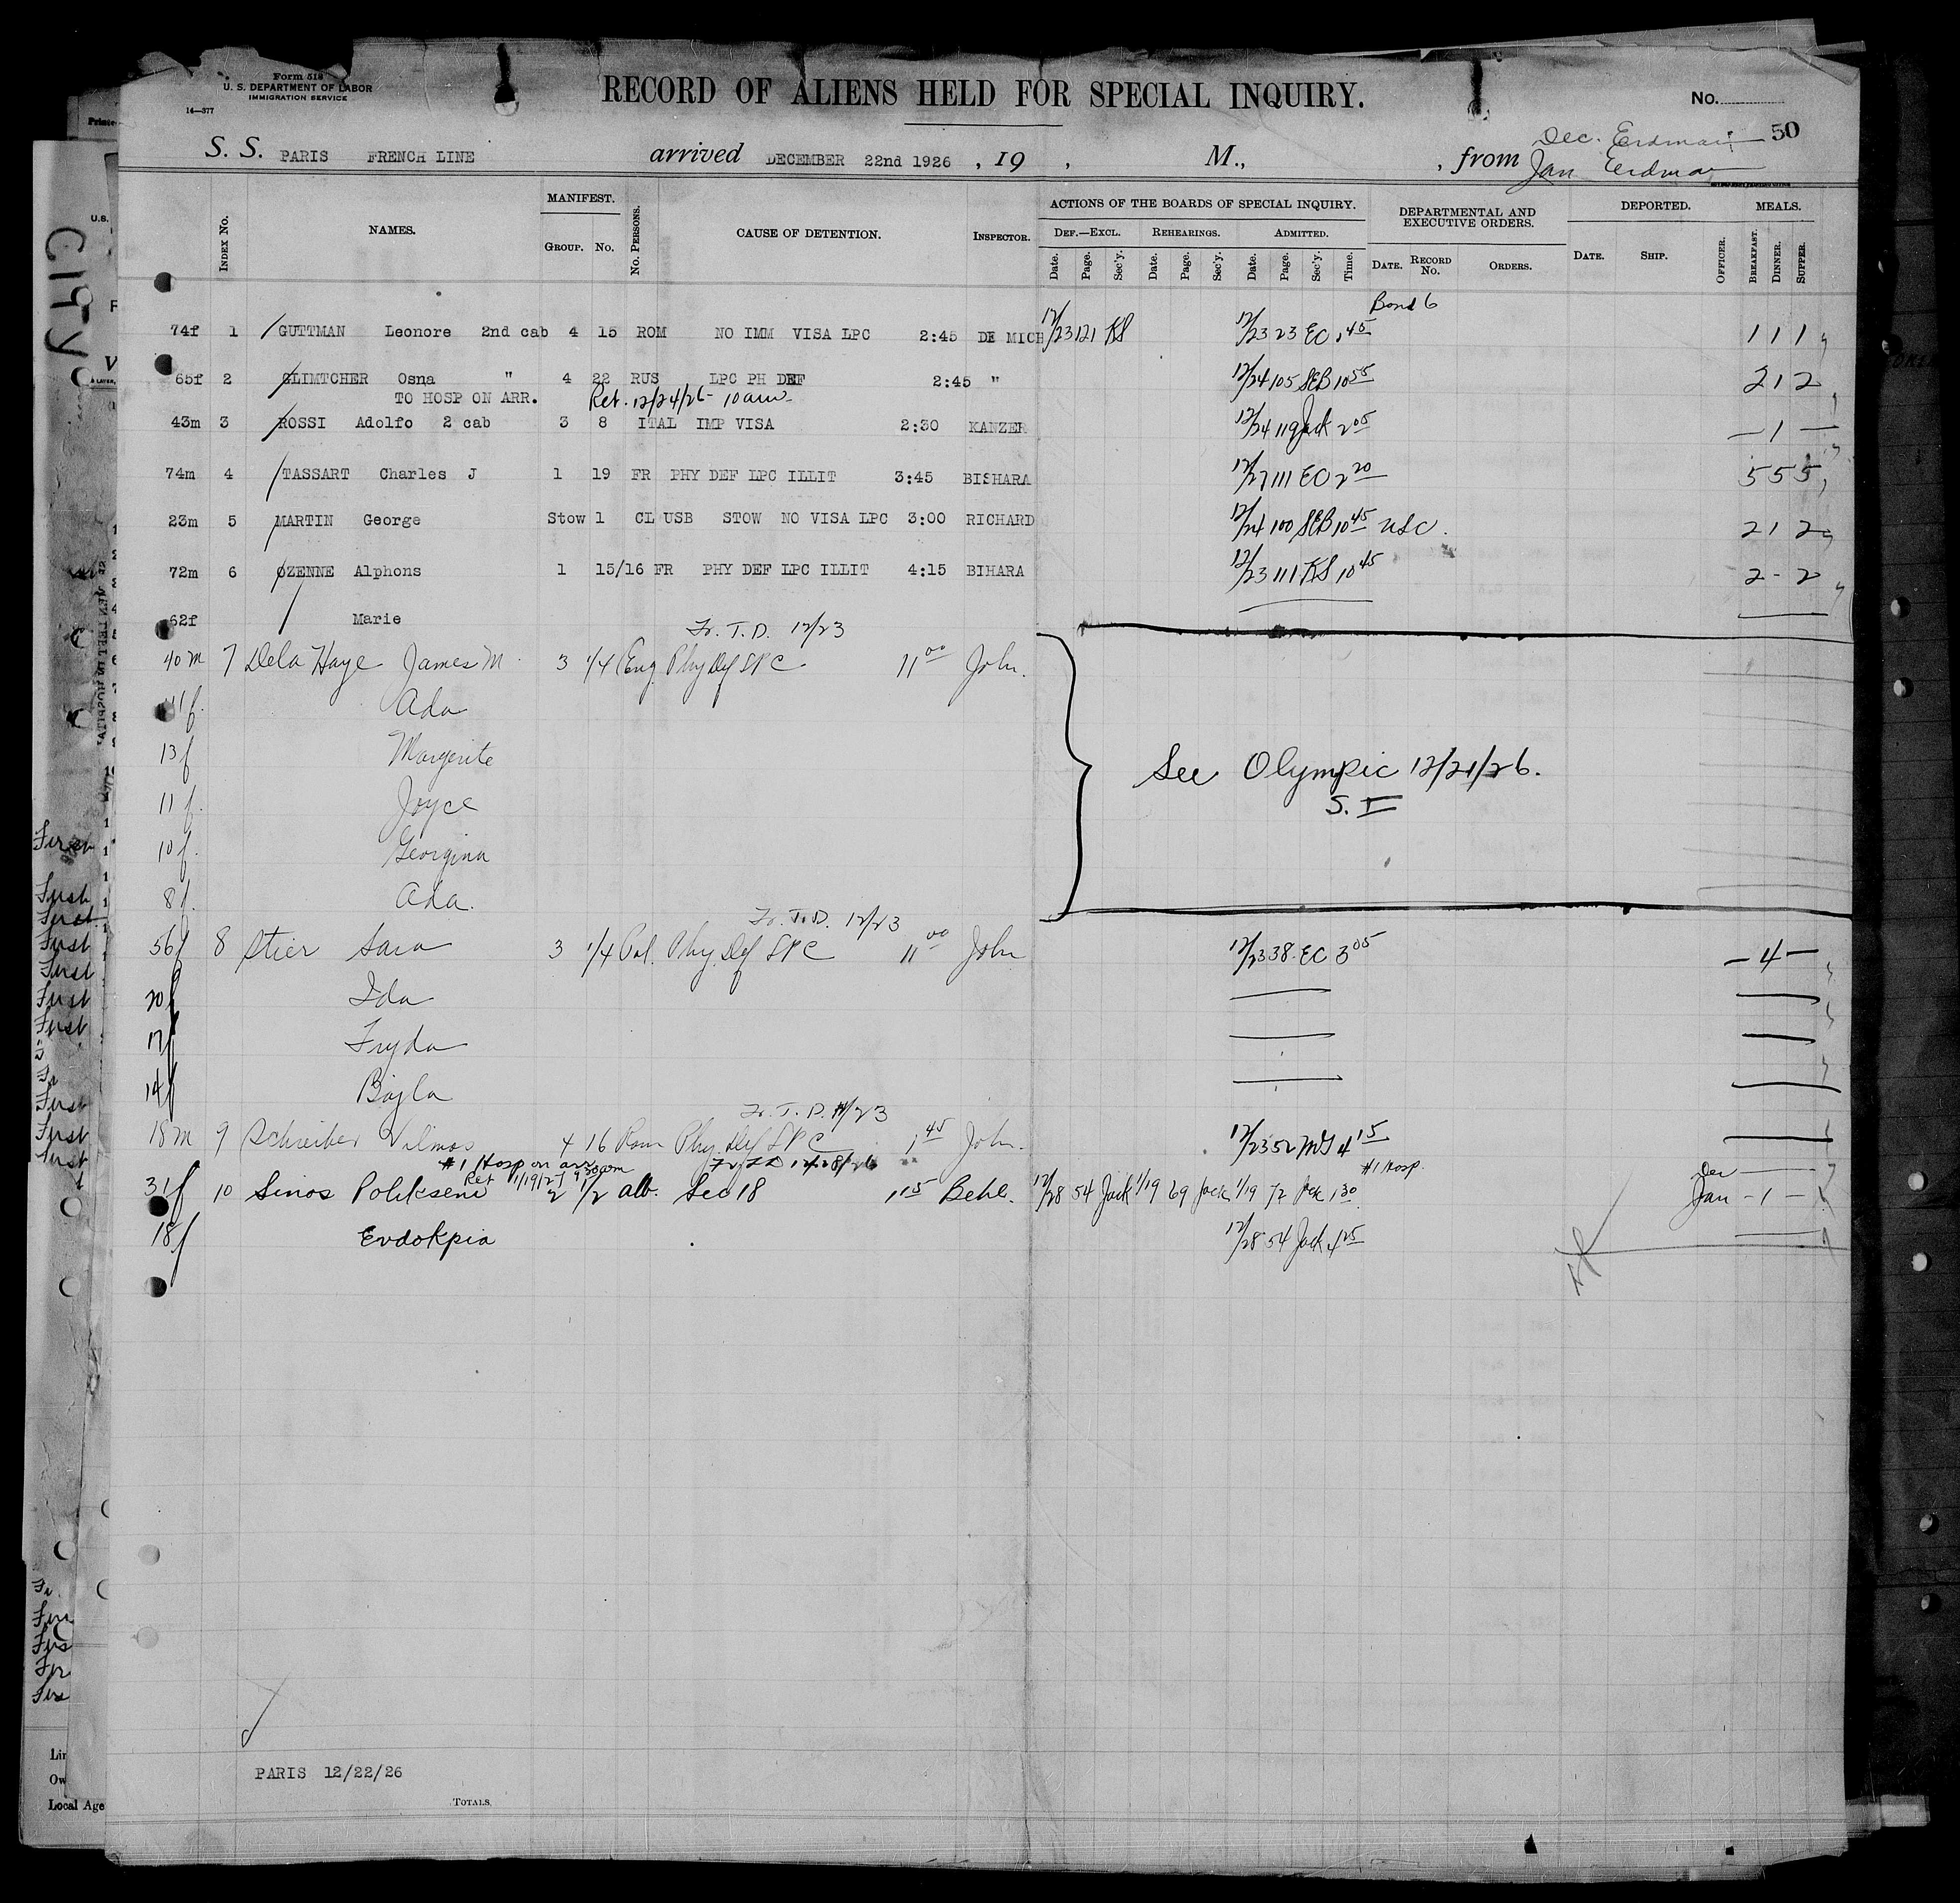 Form 518
U. S. DEPARTMENT OF LABOR
IMMIGRATION SERVICE
14—377
RECORD OF ALIENS HELD FOR SPECIAL INQUIRY.
No.
50
Dec. Erdman
S. S. PARIS FRENCH LINE arrived DECEMBER 22nd 1926 , 19 , M., , from Jan Erdman
INDEX No. NAMES. MANIFEST. GROUP. No. No. PERSONS. CAUSE OF DETENTION. INSPECTOR. ACTIONS OF THE BOARDS OF SPECIAL INQUIRY. DEPARTMENTAL AND EXECUTIVE ORDERS. DEPORTED. MEALS.
DEF.—EXCL. REHEARINGS. ADMITTED.
Date. Page. Sec'y. Date. Page. Sec'y. Date. Page. Sec'y. Time. DATE. RECORD No. ORDERS. DATE. SHIP. OFFICER. BREAKFAST. DINNER. SUPPER.
Bond 6
74f 1 GUTTMAN Leonore 2nd cab 4 15 ROM NO IMM VISA LPC 2:45 DE MICH 12/23 121 KS 12/23 23 EC 1 45 1 1 1
65f 2 GLIMTCHER Osna " 4 22 RUS LPC PH DEF 2:45 " 12/24 105 SEB 10 55 2 1 2
TO HOSP ON ARR. Ret. 12/24/26 - 10 am
43m 3 ROSSI Adolfo 2 cab 3 8 ITAL IMP VISA 2:30 KANZER 12/24 119 Jack 2 05 — 1 —
74m 4 TASSART Charles J 1 19 FR PHY DEF LPC ILLIT 3:45 BISHARA 12/27 111 EC 2 20 5 5 5
23m 5 MARTIN George Stow 1 CL USB STOW NO VISA LPC 3:00 RICHARD 12/24 100 SEB 10 45 USC. 2 1 2
72m 6 OZENNE Alphons 1 15/16 FR PHY DEF LPC ILLIT 4:15 BIHARA 12/23 111 KS 10 45 2 - 2
62f Marie
Fr. T.D. 12/23
40m 7 Dela Haye James M 3 1/4 Eng Phy Def LPC 11 00 John.
41f. Ada
13f Margerite
See Olympic 12/21/26.
S. I
11f. Joyce
10f. Georgina
8f. Ada.
Fr. T.D. 12/23
56f 8 Stier Sara 3 1/4 Pol. Phy. Def LPC 11 00 John 12/23 38. EC 3 05 — 4 —
20f Ida
17f Fryda
14f Bajla
Fr. T.D. 12/23
18m 9 Schreiber Vilmos 4 16 Rom Phy. Def LPC 1 45 John. 12/23 52 MS 4 15
#1 Hosp on arr. Fr. T.D 12/28/26 #1 Hosp. Dec
Ret 1/19/27 9 30 am
31f 10 Sinos Poliksene 2 1/2 alb. Sec 18 1 15 Behl. 12/28 54 Jack 1/19 69 Jack 1/19 72 Jack 1 30 Jan - 1 -
18f Evdokpia 12/28 54 Jack 4 25
PARIS 12/22/26
TOTALS
CITY
First
First
First
First
First
First
First
First
First
First
Local Age